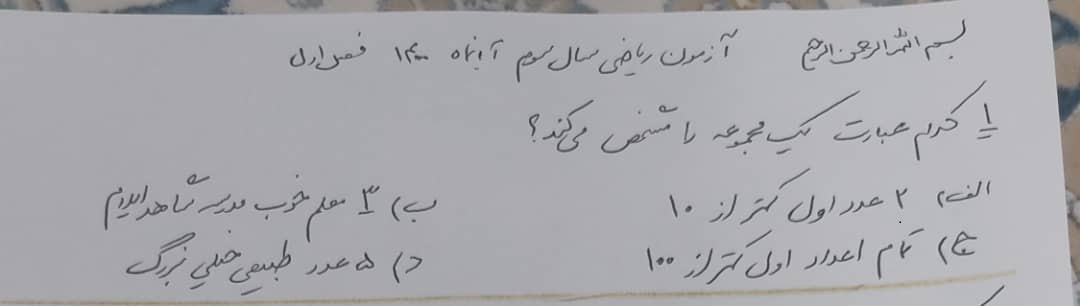 بسم الله الرحمن الرحیم آزمون ریاضی سال سوم آبانماه ۱۴۰۰ فصل اول
۱ کدام عبارت یک مجموعه را مشخص می‌کند؟
الف) ۲ عدد اول کمتر از ۱۰ ب) ۳ معلم خوب مدرسه شاهد
ج) تمام اعداد اول کمتر از ۱۰۰ د) ۵ عدد طبیعی خیلی بزرگ